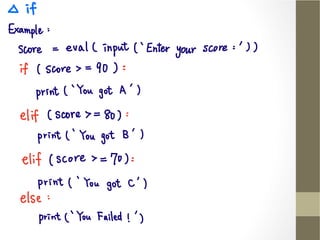 △ if
Example :
Score = eval ( input ( ‘ Enter your score : ’ ) )
if ( score >= 90 ) :
print ( ‘ You got A ’ )
elif ( score >= 80 ) :
print ( ‘ You got B ’ )
elif ( score >= 70 ) :
print ( ‘ You got C ’ )
else :
print ( ‘ You Failed ! ’ )